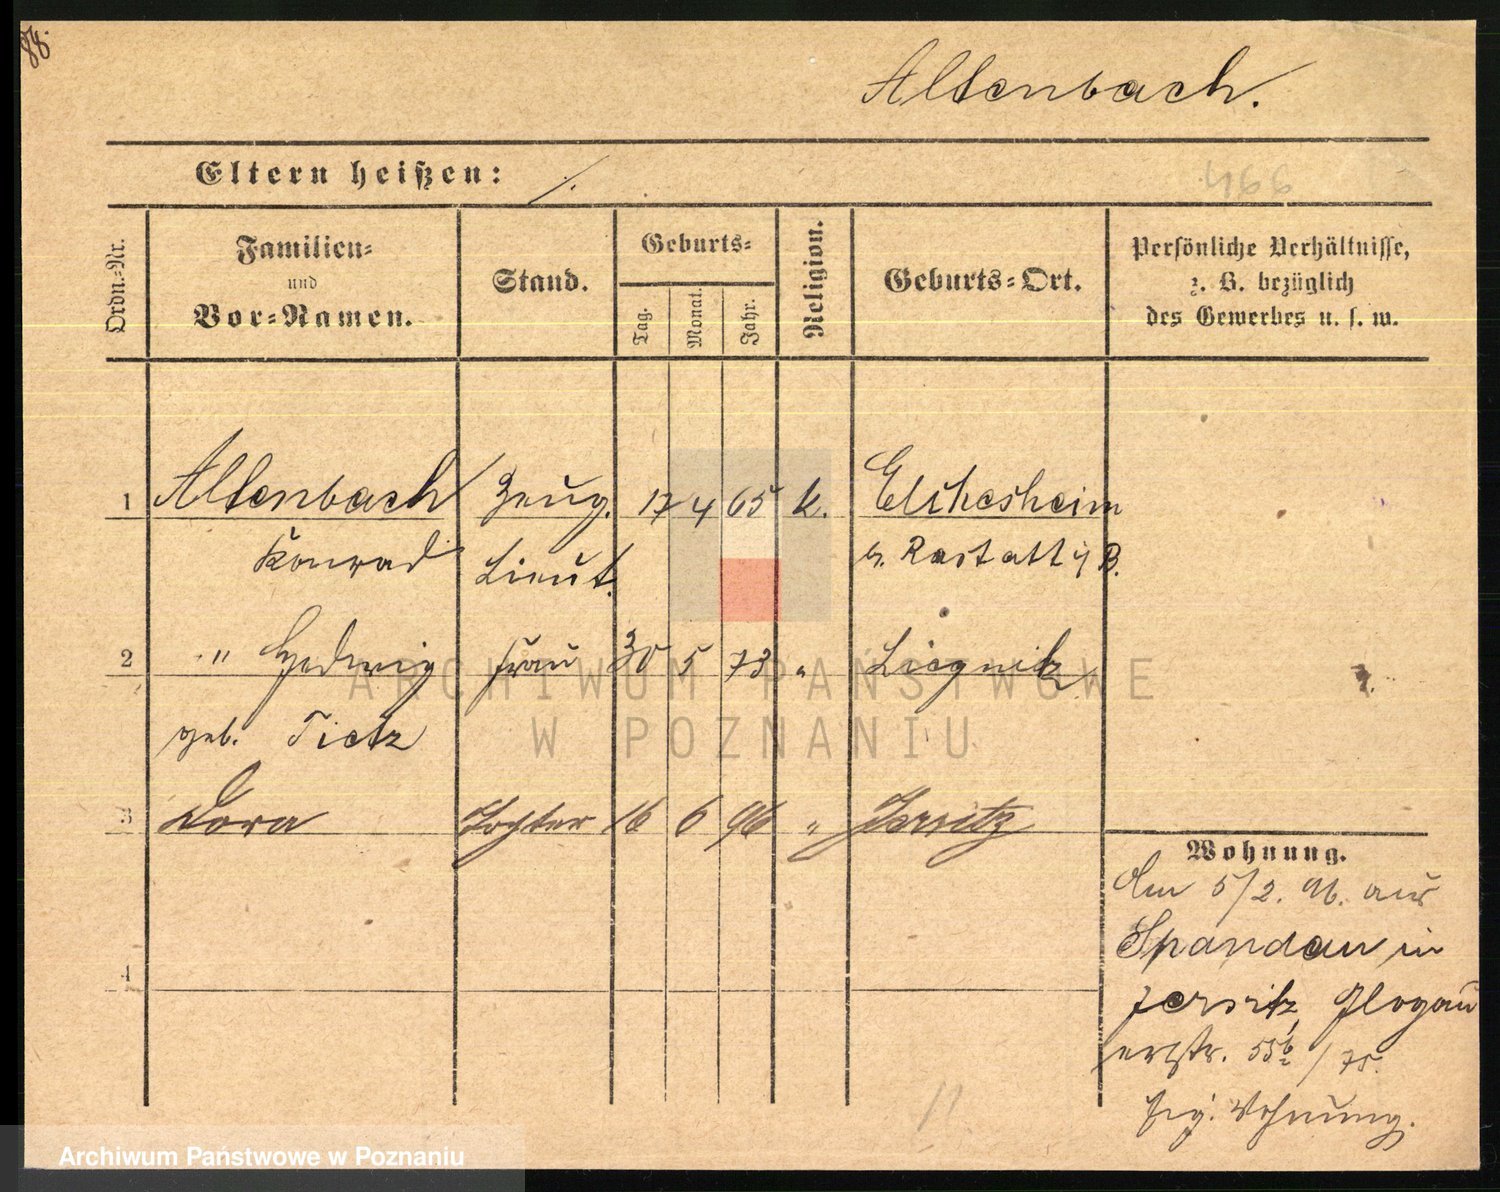 88.
Altenbach.
Eltern heißen: /.
Ordn.-Nr.
Familien-
und
Vor-Namen.
Stand.
Geburts-
Tag.
Monat.
Jahr.
Religion.
Geburts-Ort.
Persönliche Verhältnisse,
z. B. bezüglich
des Gewerbes u. s. w.
1 Altenbach Zeug. 17 4 65 k. Elchesheim
Konrad Lieut. b. Rastatt i/B.
2 " Hedwig Frau 30 5 73 " Liegnitz
geb. Tietz
3 Dora Tochter 16 6 96 " Jersitz
4
Wohnung.
Am 5/2. 96. aus
Spandau in
Jersitz, Glogau
erstr. 55 / 75.
Eig. Wohnung.
ARCHIWUM PAŃSTWOWE
W POZNANIU
Archiwum Państwowe w Poznaniu